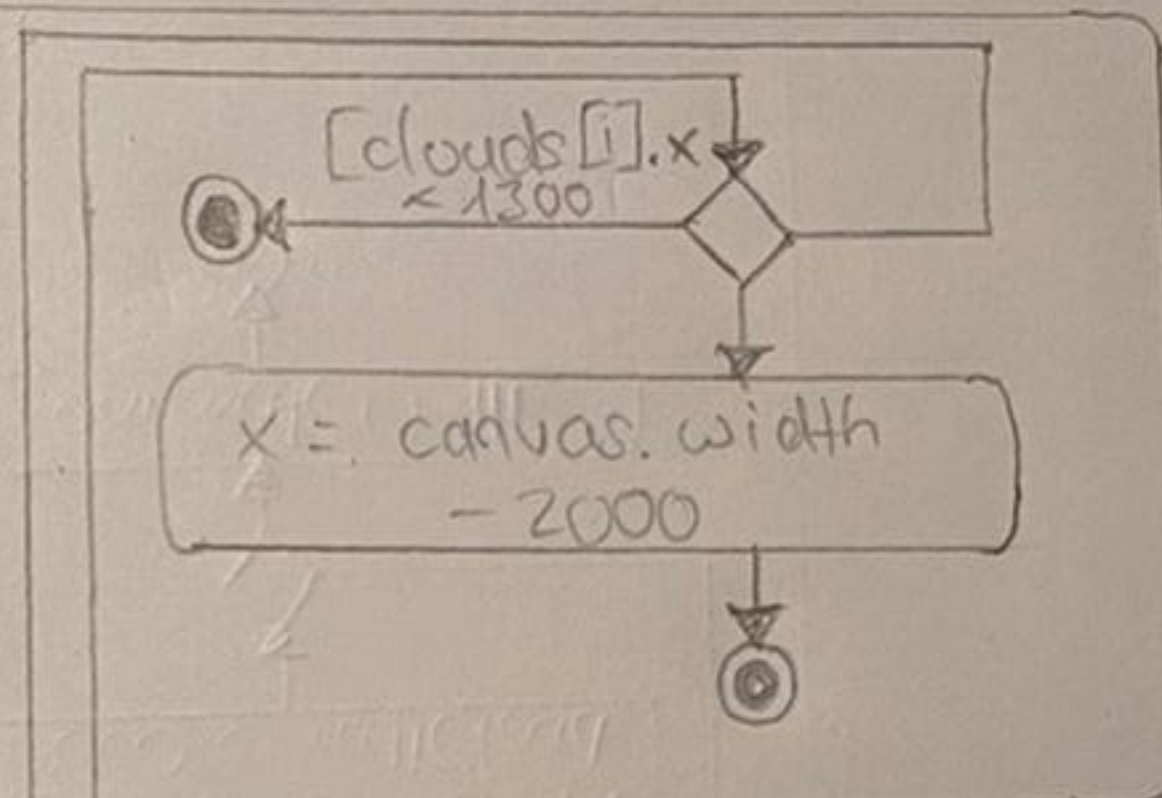 [clouds[i].x
< 1300
x = canvas.width
- 2000